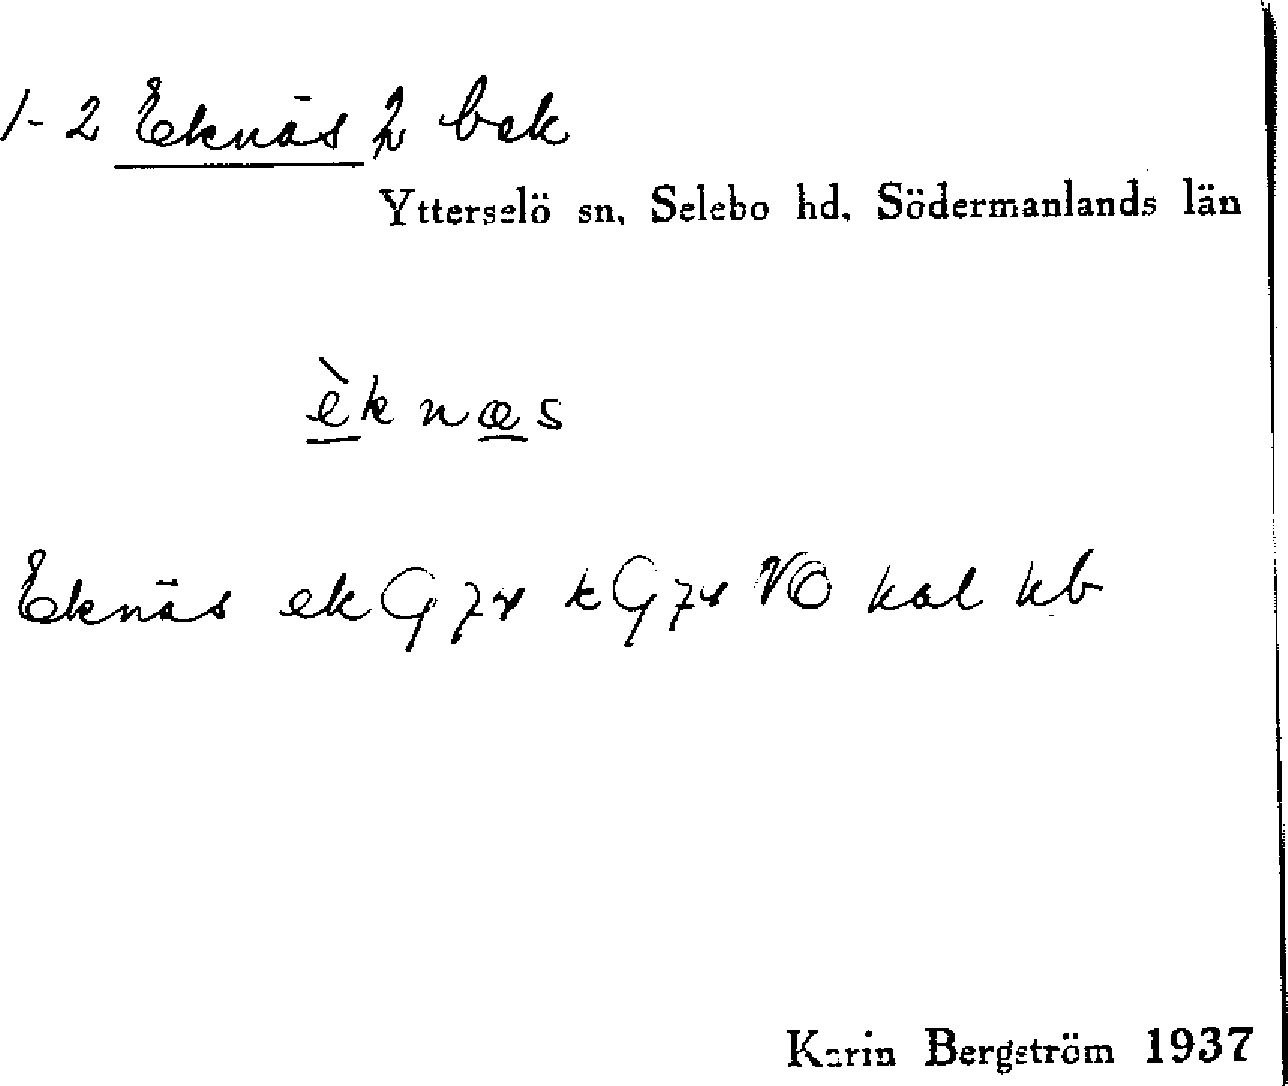 1-2 Eknäs 2 bek
Ytterselö sn, Selebo hd, Södermanlands län
èknæs
Eknäs ek G 74 k G 74 VO kal kb
Karin Bergström 1937